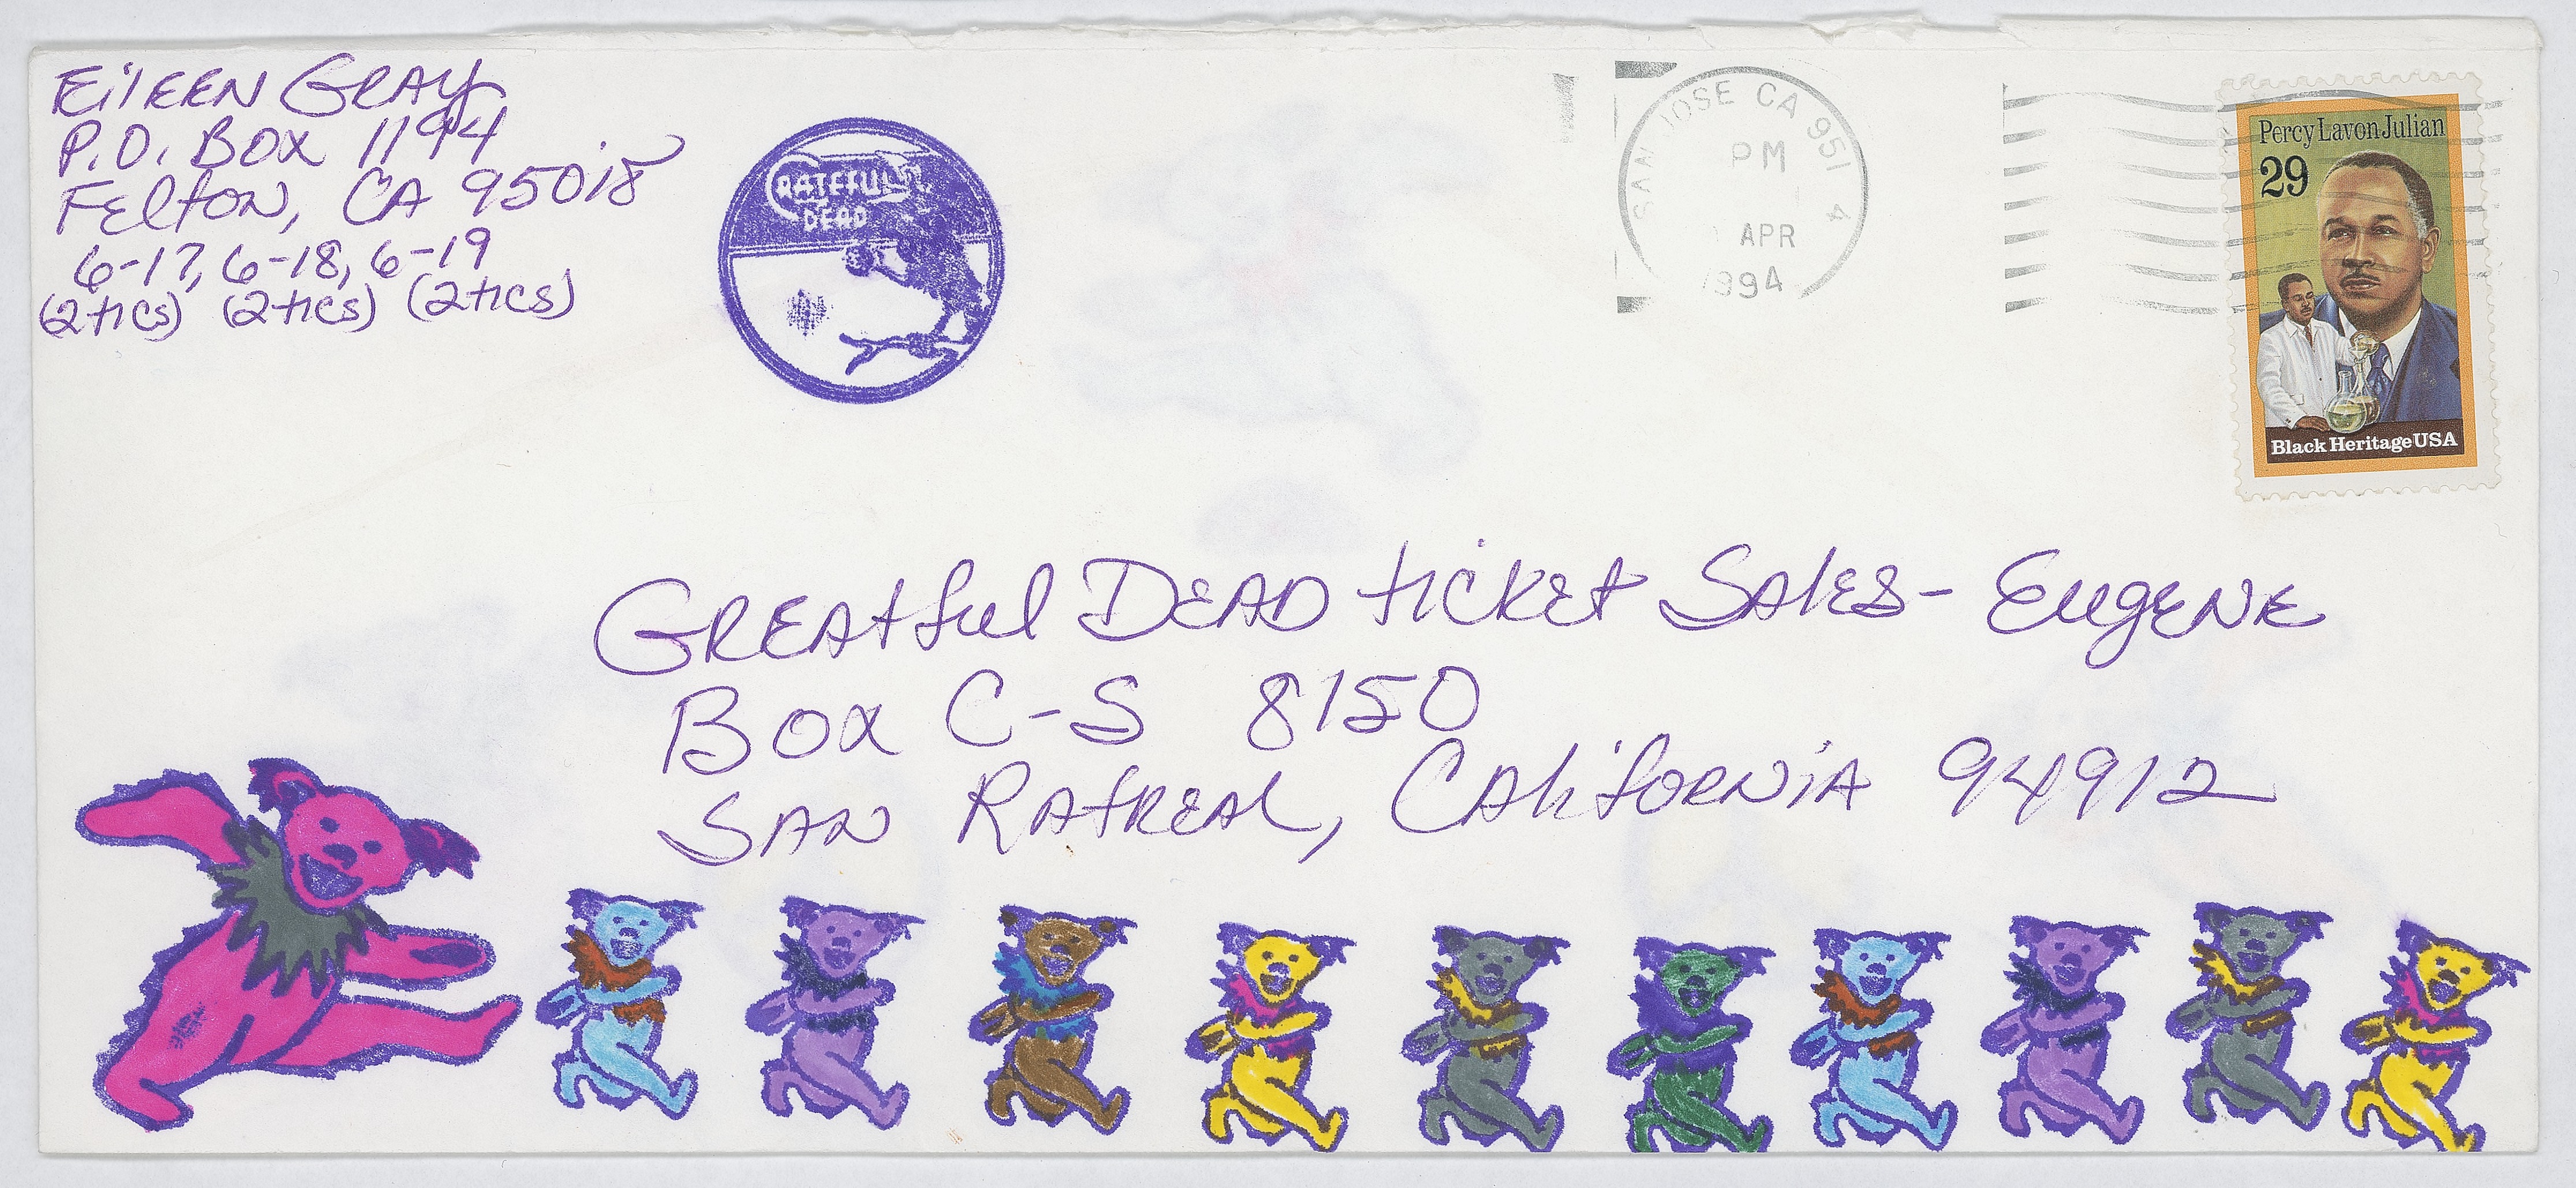 EilEEN GRAY
P.O. Box 1194
Felton, CA 95018
6-17, 6-18, 6-19
(2 tics) (2 tics) (2 tics)
GRATEFUL
DEAD
SAN JOSE CA 951 4
PM
APR
1994
Percy Lavon Julian
29
Black Heritage USA
GREAtful DEAD ticKEt SAlES - EugENE
Box C-S 8150
SAN RAfAEAL, CAliforniA 94912